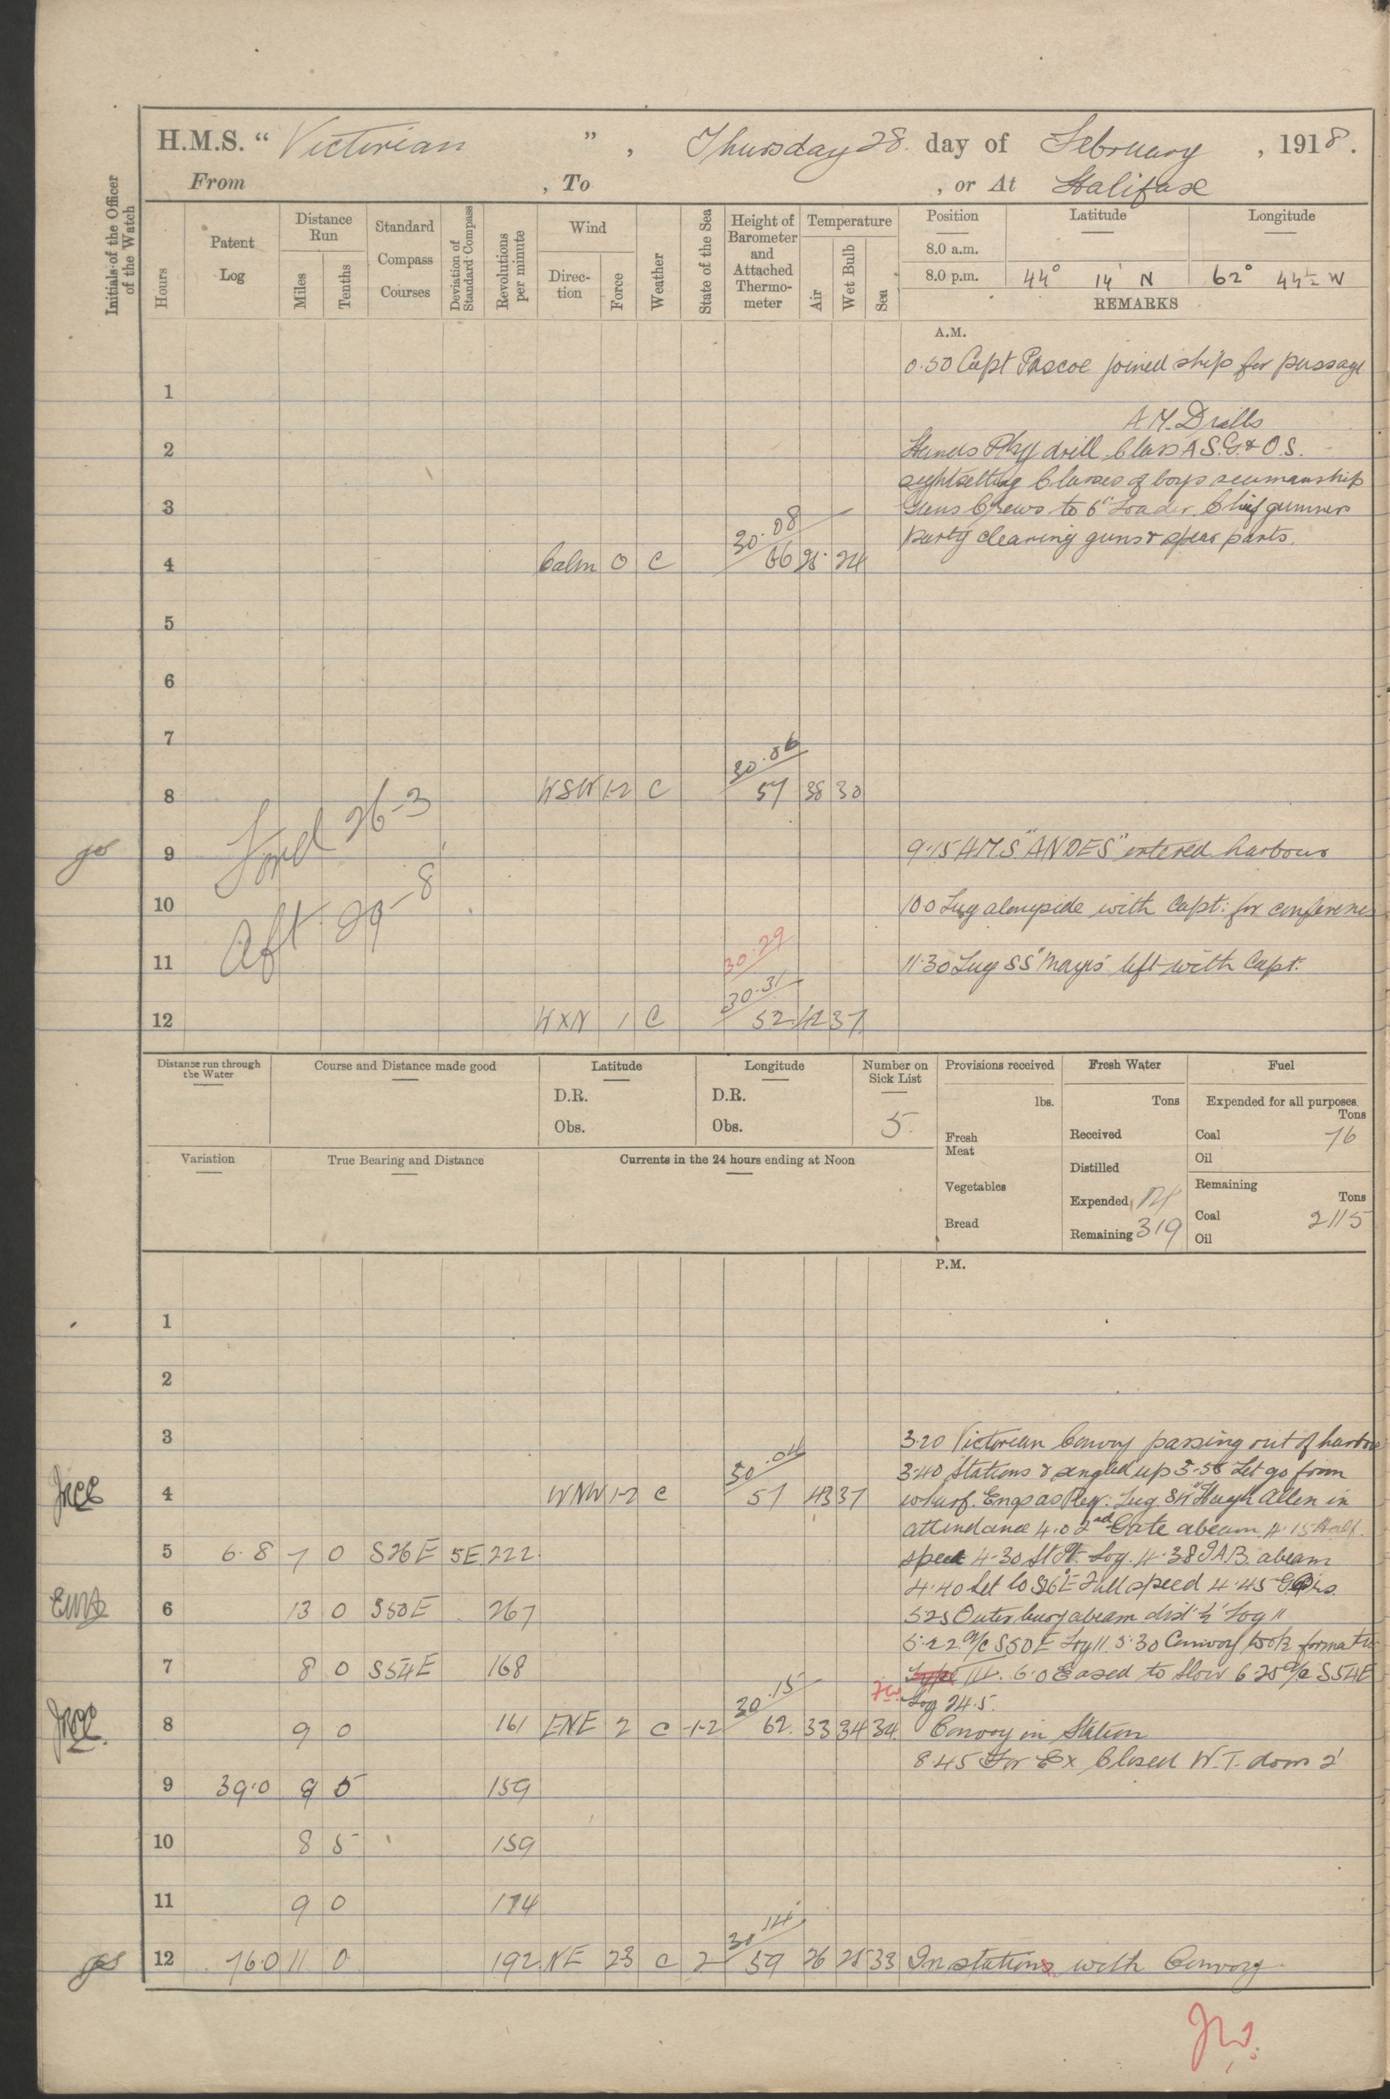 H.M.S. " Victorian " , Thursday 28. day of February , 1918.
From , To , or At Halifax
Initials of the Officer of the Watch
Hours
Patent Log
Distance Run
Miles
Tenths
Standard Compass Courses
Deviation of Standard Compass
Revolutions per minute
Wind
Direction
Force
Weather
State of the Sea
Height of Barometer and Attached Thermometer
Temperature
Air
Wet Bulb
Sea
Position Latitude Longitude
8.0 a.m.
8.0 p.m. 44° 14' N 62° 44½ W
REMARKS
A.M.
0.50 Capt Pascoe joined ship for passage
1
A.M. Drills
2 Hands Phy drill Class A S.G. & O.S.
sightsetting Classes of boys seamanship
3 Guns Crews to 6" Loader. Chief gunners
30.08 party clearing guns & spear parts.
4 Calm 0 C 66 25 24
5
6
7
30.06
8 WSW 1-2 C 57 38 30
Ford 26-3
9 9.15 HMS "ANDES" entered harbour
Aft 29-8
10 10.0 Tug alongside with Capt: for conference
30.29
11 11.30 Tug SS "Mayis" left with Capt:
30.31
12 WXN 1 C 52 42 37
Distance run through the Water
Course and Distance made good
Latitude
D.R.
Obs.
Longitude
D.R.
Obs.
Number on Sick List
5.
Provisions received
lbs.
Fresh Meat
Vegetables
Bread
Fresh Water
Tons
Received
Distilled
Expended
Remaining 319
Fuel
Expended for all purposes.
Tons
Coal 76
Oil
Remaining
Tons
Coal 2115
Oil
Variation
True Bearing and Distance
Currents in the 24 hours ending at Noon
P.M.
1
2
3 3.20 Victorian Convoy passing out of harbour
30.04 3.40 Stations & singled up 3.58 Let go from
4 WNW 1-2 C 57 43 37 wharf. Engs as Req: Tug SH "Hugh Allen in
attendance 4.0 2nd Gate abeam 4.15 Half
5 6.8 7 0 S26E 5E 222 speed 4.30 St Pt. Log. 4.38 I.A.B. abeam
4.40 Set Co S26°E Full speed 4.45
6 13 0 S50E 267 5.25 Outer buoy abeam dist ½' Log 11
5.22 a/c S50E Log 11. 5.30 Convoy took formatn
7 8 0 S54E 168 6.0 Eased to Slow 6.25 a/c S54E
30.15 Log 24.5.
8 9 0 161 ENE 2 C 1-2 62. 33 34 34 Convoy in Station
8.45 For Ex Closed W.T. doors 2'
9 39.0 9 5 159
10 8 5 159
11 9 0 174
30.14
12 76.0 11 0 192 NE 23 C 2 59 26 25 33 In station with Convoy